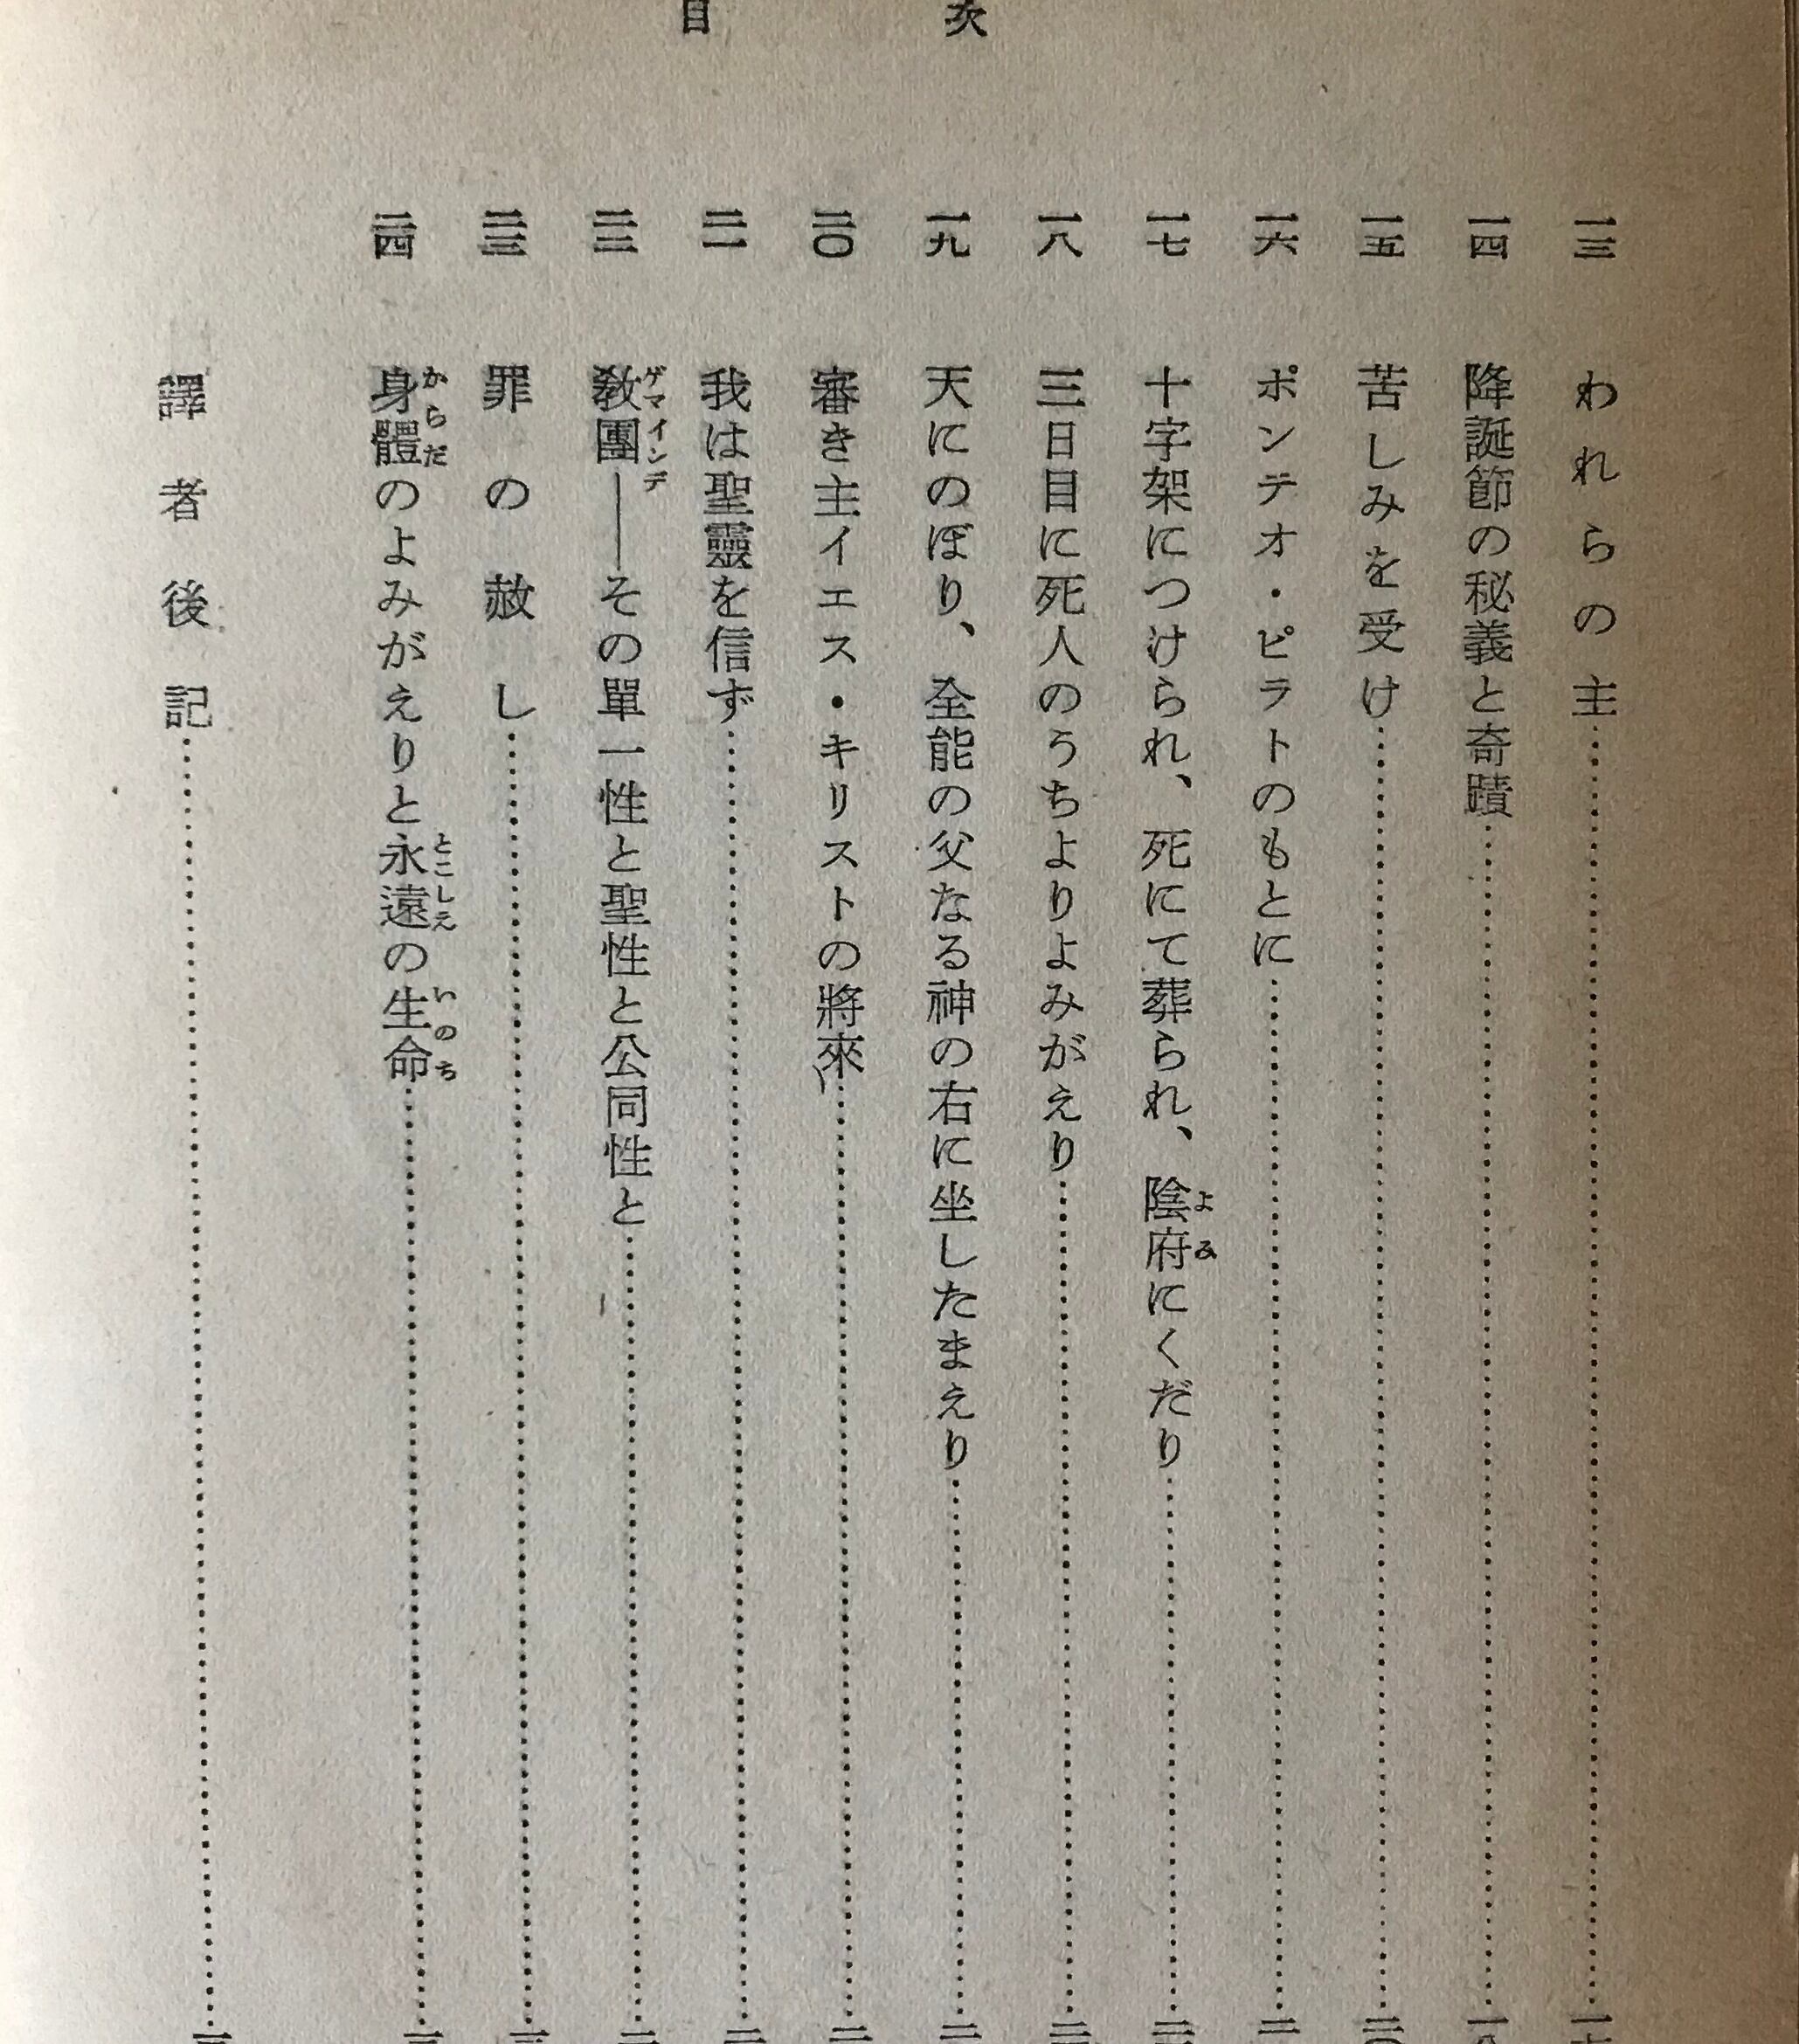 目次
一三 われらの主
一四 降誕節の秘義と奇蹟
一五 苦しみを受け
一六 ポンテオ・ピラトのもとに
一七 十字架につけられ、死にて葬られ、陰府にくだり
よみ
一八 三日目に死人のうちよりよみがえり
一九 天にのぼり、全能の父なる神の右に坐したまえり
二〇 審き主イエス・キリストの將來
二一 我は聖靈を信ず
二二 敎團――その單一性と聖性と公同性と
ゲマインデ
二三 罪の赦し
二四 身體のよみがえりと永遠の生命
からだ とこしえ いのち
譯者後記